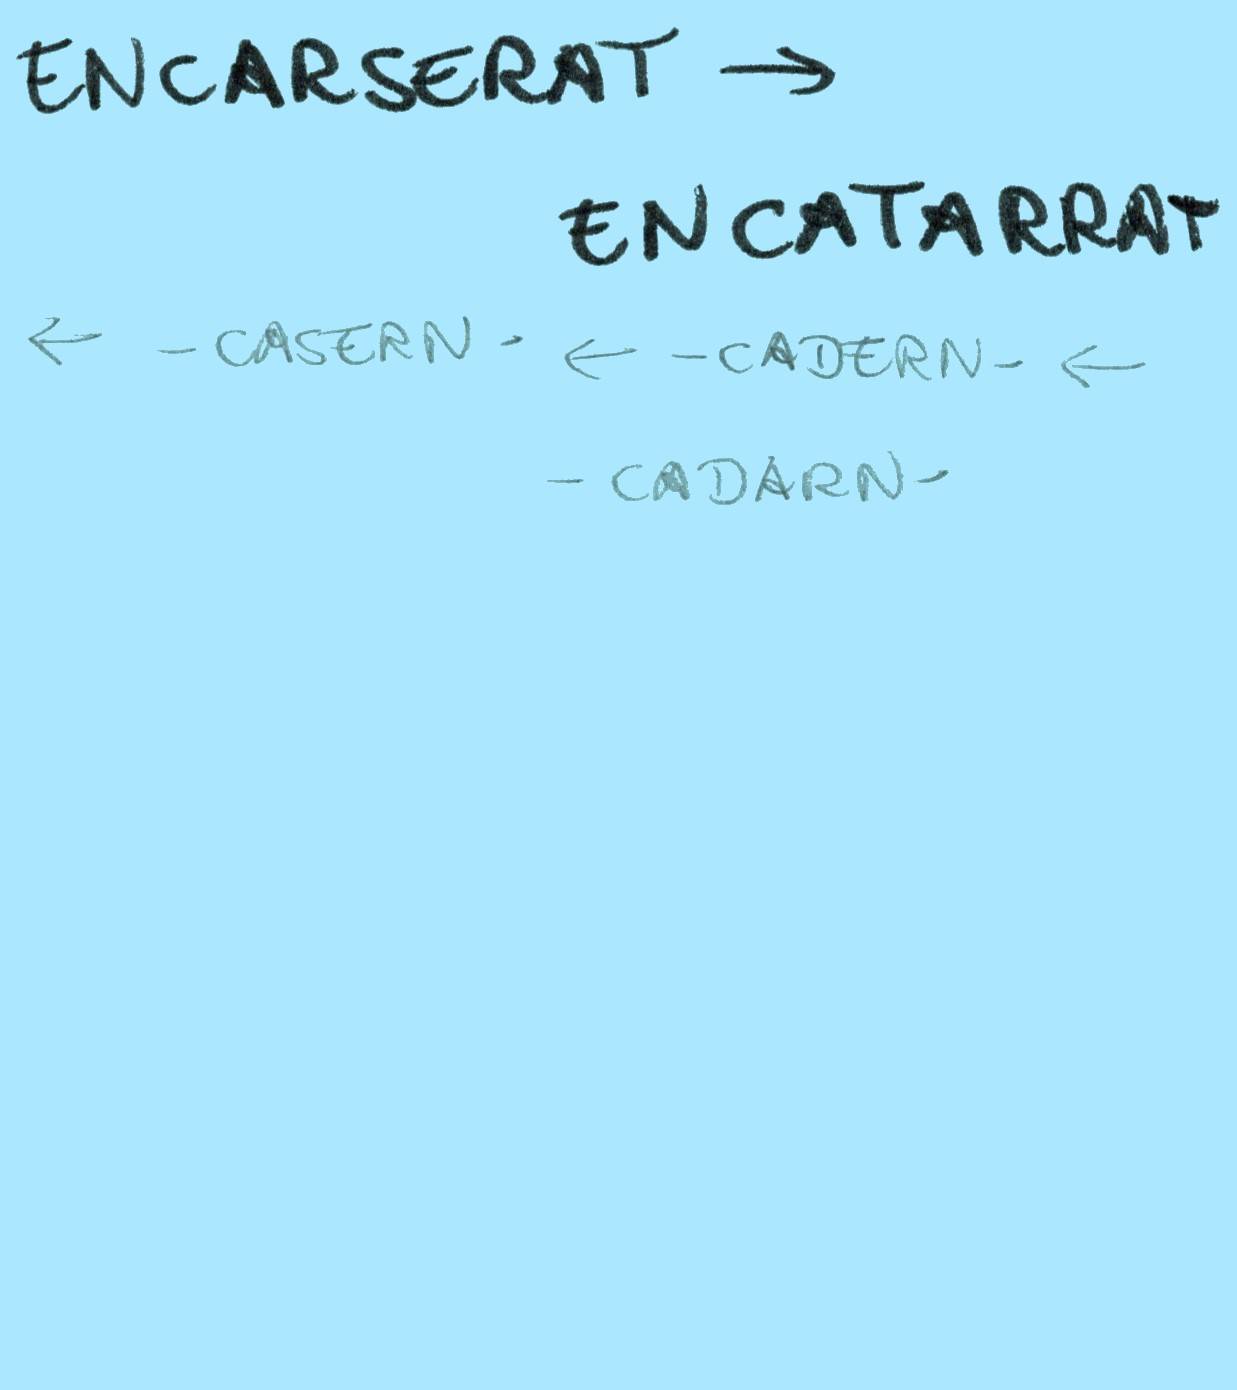 ENCARSERAT →
ENCATARRAT
← - CASERN - ← - CADERN - ←
- CADARN -